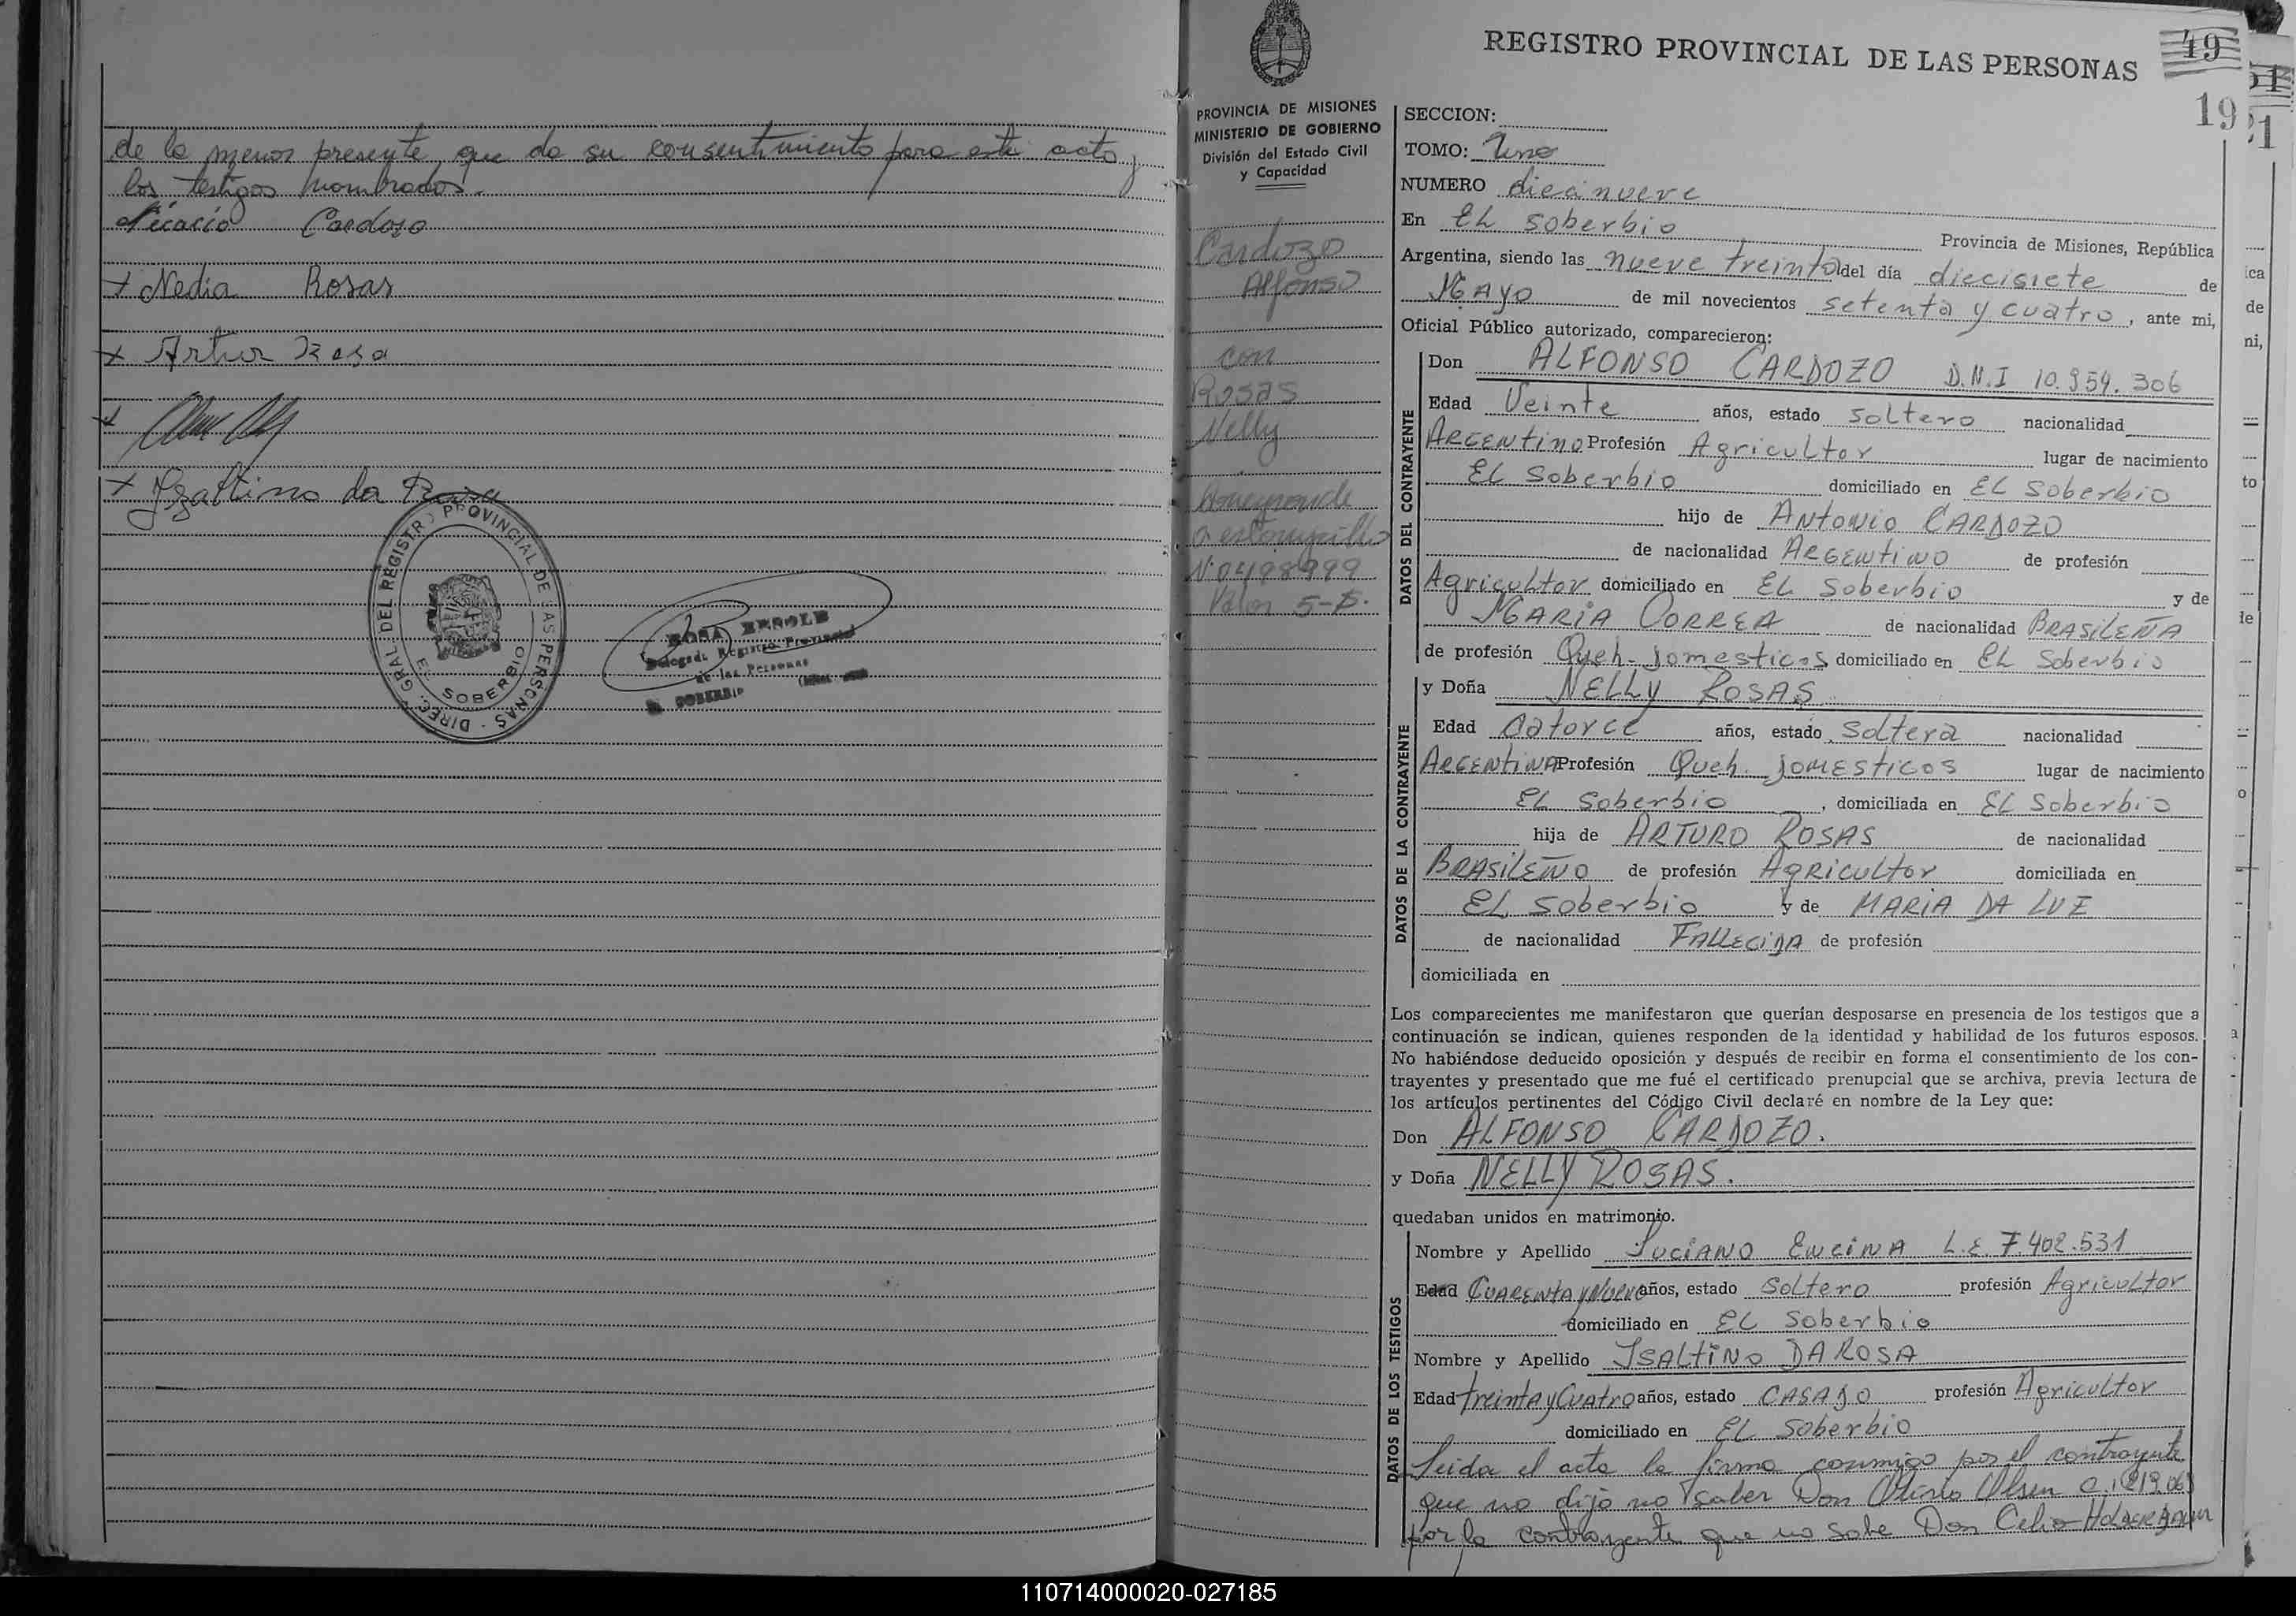 de la menor presente, que da su consentimiento para este acto y
los testigos nombrados.
Cardoso
+ Nedia Rosas
+ Artur Rosa
+
+ Izaltino da Rosa
DIREC. GRAL DEL REGISTRO PROVINCIAL DE LAS PERSONAS
EL SOBERBIO
ROSA
Registro Provincial
de las Personas
EL SOBERBIO
REGISTRO PROVINCIAL DE LAS PERSONAS
49
19
PROVINCIA DE MISIONES
MINISTERIO DE GOBIERNO
División del Estado Civil
y Capacidad
Cardozo
Alfonso
con
Rosas
Nelly
a estampilla
Nº 0498999
Valor 5-$.
SECCION:
TOMO: Uno
NUMERO diecinueve
En EL Soberbio Provincia de Misiones, República
Argentina, siendo las nueve treinta del día diecisiete de
MAyo de mil novecientos setenta y cuatro, ante mi,
Oficial Público autorizado, comparecieron:
DATOS DEL CONTRAYENTE
Don ALFONSO CARDOZO D.N.I 10.954.306
Edad Veinte años, estado soltero nacionalidad
ARGENtino Profesión Agricultor lugar de nacimiento
EL Soberbio domiciliado en EL Soberbio
hijo de ANtoNio CARDOZO
de nacionalidad ARGENtiNO de profesión
Agricultor domiciliado en EL Soberbio y de
MARIA CORREA de nacionalidad BRASILEÑA
de profesión Queh. domesticos domiciliado en EL Soberbio
DATOS DE LA CONTRAYENTE
y Doña NELLY ROSAS
Edad Catorce años, estado soltera nacionalidad
ARGENtiNA Profesión Queh. domesticos lugar de nacimiento
EL Soberbio, domiciliada en EL Soberbio
hija de ARTURO ROSAS de nacionalidad
BRASiLEÑO de profesión AgRicultor domiciliada en
EL Soberbio y de MARIA DA LUZ
de nacionalidad FALLECIDA de profesión
domiciliada en
Los comparecientes me manifestaron que querían desposarse en presencia de los testigos que a
continuación se indican, quienes responden de la identidad y habilidad de los futuros esposos.
No habiéndose deducido oposición y después de recibir en forma el consentimiento de los con-
trayentes y presentado que me fué el certificado prenupcial que se archiva, previa lectura de
los artículos pertinentes del Código Civil declaré en nombre de la Ley que:
Don ALFONSO CARDOZO.
y Doña NELLY ROSAS.
quedaban unidos en matrimonio.
DATOS DE LOS TESTIGOS
Nombre y Apellido LUCIANO ENCINA L.E 7.402.531
Edad CUARENtA y NUEVE años, estado Soltero profesión Agricultor
domiciliado en EL Soberbio
Nombre y Apellido ISALtiNO DA ROSA
Edad treintA y CuAtro años, estado CASADO profesión Agricultor
domiciliado en EL Soberbio
Leida el acta la firma conmigo por el contrayente
que no dijo no saber Don Olsen
por la contrayente que no sabe Don Celio
110714000020-027185